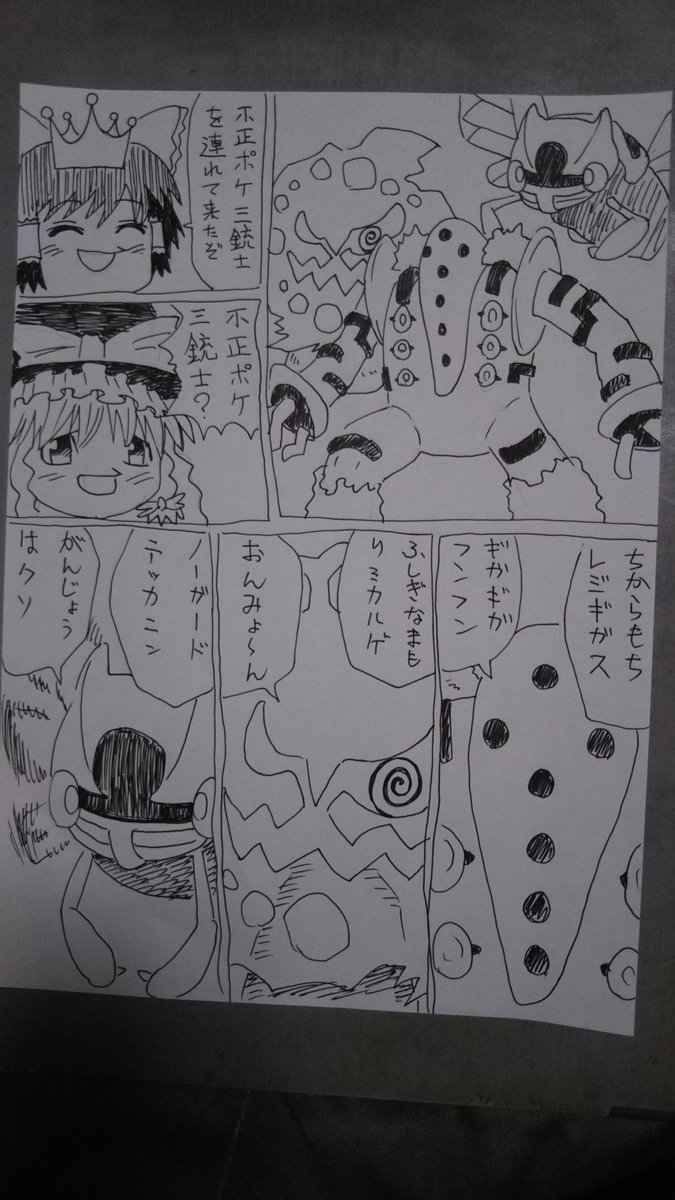 不正ポケ三銃士
を連れて来たぞ
不正ポケ
三銃士?
ちからもち
レジギガス
ギガギガ
フンフン
ふしぎなまも
りミカルゲ
おんみょ〜ん
ノーガード
テッカニン
がんじょう
はクソ